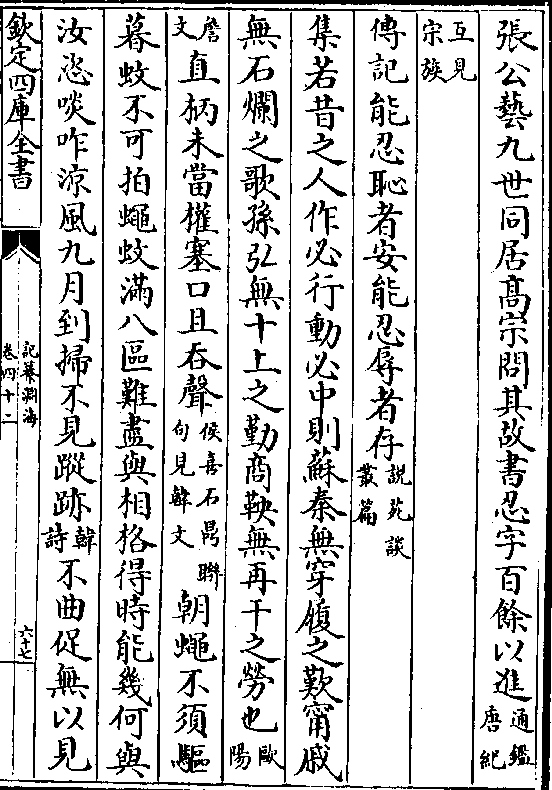 張公藝九世同居高宗問其故書忍字百餘以進通鑑唐紀
互見宗族
傳記能忍恥者安能忍辱者存說苑談叢篇
集若昔之人作必行動必中則蘇秦無穿履之歎甯戚
無石爛之歌孫弘無十上之勤商鞅無再干之勞也歐陽
詹文直柄未當權塞口且吞聲侯喜石鼎聯句見韓文朝蠅不須驅
暮蚊不可拍蠅蚊滿八區難盡與相格得時能幾何與
汝恣啖咋涼風九月到掃不見蹤跡韓詩不曲促無以見
欽定四庫全書
記纂淵海
卷四十二
六十七